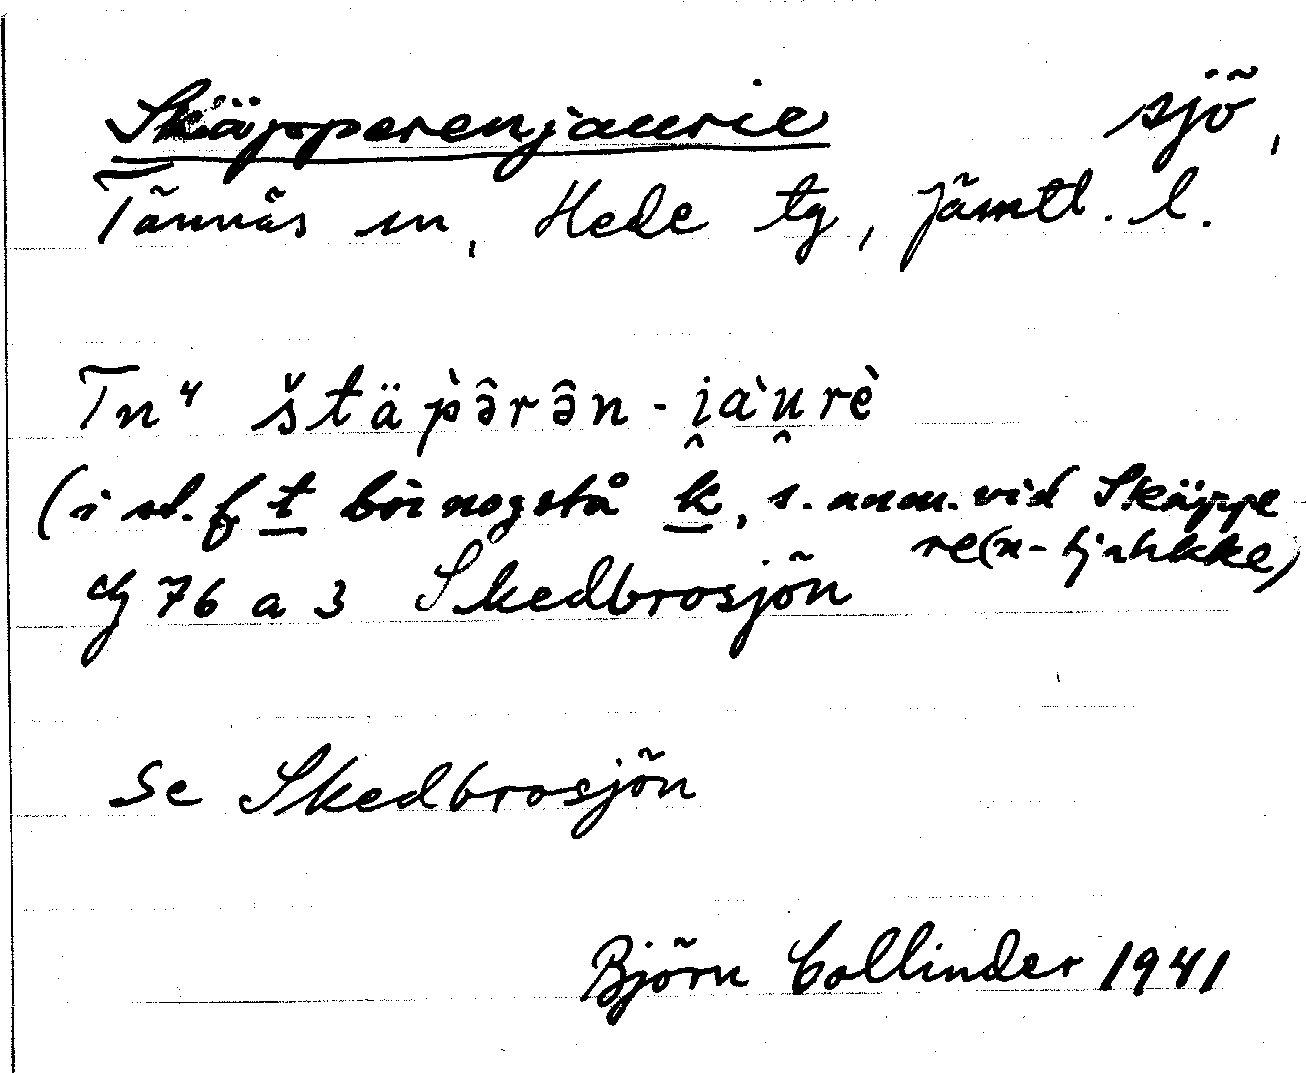 Skäpperenjaurie sjö,
Tännäs sn, Hede tg, Jämtl. l.
Tn4 štäp̀ə̂rə̂n - i̭àṷrè
(i st. f t bör nog stå k, s. anm. vid Skäppe-
re(n-tjahkke)
cf 76 a 3 Skedbrosjön
Se Skedbrosjön
Björn Collinder 1941